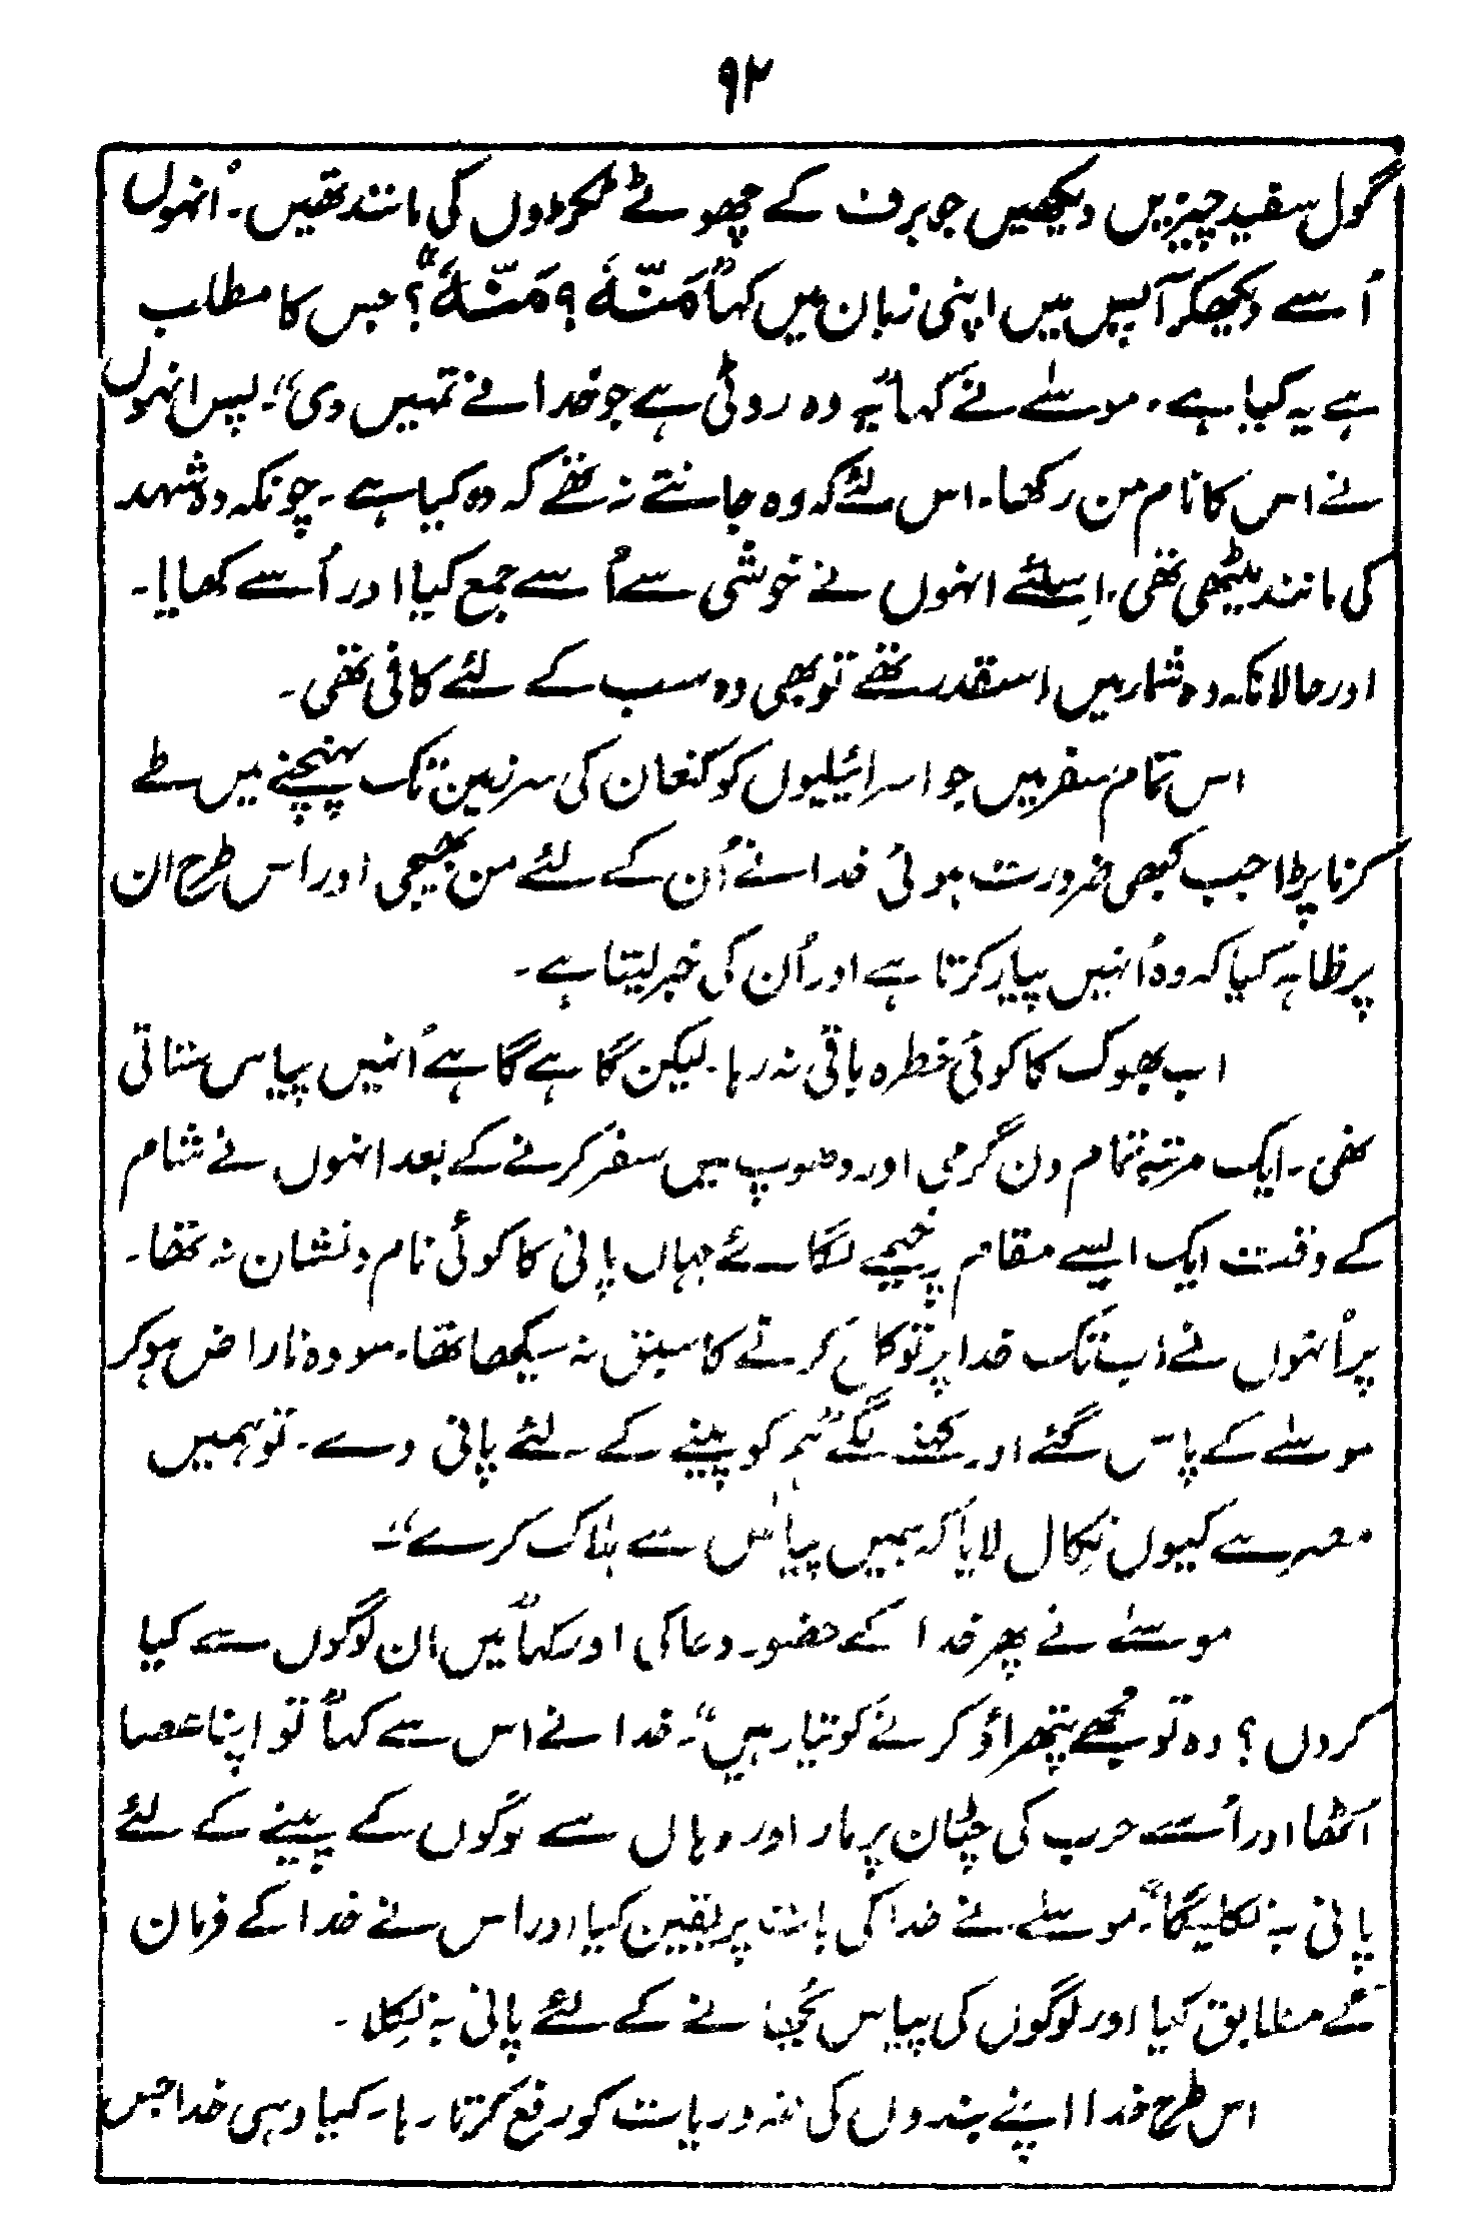 ۹۲
گول سفید چیزیں دیکھیں جو برف کے چھوٹے ٹکڑوں کی مانند تھیں۔ اُنہوں
اُسے دیکھکر آپس میں اپنی زبان میں کہا "مَنّہَ ؟ مَنّہَ" ؟ جس کا مطلب
ہے یہ کیا ہے۔ موسےٰ نے کہا "یہ وہ روٹی ہے جو خدا نے تمہیں دی"۔ پس انہوں
نے اس کا نام من رکھا۔ اس لئے کہ وہ جانتے نہ تھے کہ وہ کیا ہے۔ چونکہ وہ شہد
کی مانند میٹھی تھی۔ اِسلئے انہوں نے خوشی سے اُسے جمع کیا اور اُسے کھایا۔
اور حالانکہ وہ شمار میں اسقدر تھے تو بھی وہ سب کے لئے کافی تھی۔
اس تمام سفر میں جو اسرائیلیوں کو کنعان کی سرزمین تک پہنچنے میں طے
کرنا پڑا جب کبھی ضرورت ہوئی خدا نے اُن کے لئے من بھیجی اور اس طرح ان
پر ظاہر کیا کہ وہ اُنہیں پیار کرتا ہے اور اُن کی خبر لیتا ہے۔
اب بھوک کا کوئی خطرہ باقی نہ رہا۔ لیکن گاہے گاہے اُنہیں پیاس ستاتی
تھی۔ ایک مرتبہ تمام دن گرمی اور دھوپ میں سفر کرنے کے بعد انہوں نے شام
کے وقت ایک ایسے مقام پر خیمے لگائے جہاں پانی کا کوئی نام و نشان نہ تھا۔
پر اُنہوں نے اب تک خدا پر توکل کرنے کا سبق نہ سیکھا تھا۔ سو وہ ناراض ہو کر
موسےٰ کے پاس گئے اور کہنے لگے "ہم کو پینے کے لئے پانی دے۔ تو ہمیں
مصر سے کیوں نکال لایا کہ ہمیں پیاس سے ہلاک کرے"۔
موسےٰ نے پھر خدا کے حضور دعا کی اور کہا "میں ان لوگوں سے کیا
کروں ؟ وہ تو مجھے پتھراؤ کرنے کو تیار ہیں"۔ خدا نے اس سے کہا "تو اپنا عصا
اُٹھا اور اُسے حرب کی چٹان پر مار اور وہاں سے لوگوں کے پینے کے لئے
پانی بہ نکلیگا"۔ موسےٰ نے خدا کی بات پر یقین کیا اور اس نے خدا کے فرمان
کے مطابق کیا اور لوگوں کی پیاس بُجھانے کے لئے پانی بہ نکلا۔
اس طرح خدا اپنے بندوں کی ضروریات کو رفع کرتا رہا۔ کیا وہی خدا جس